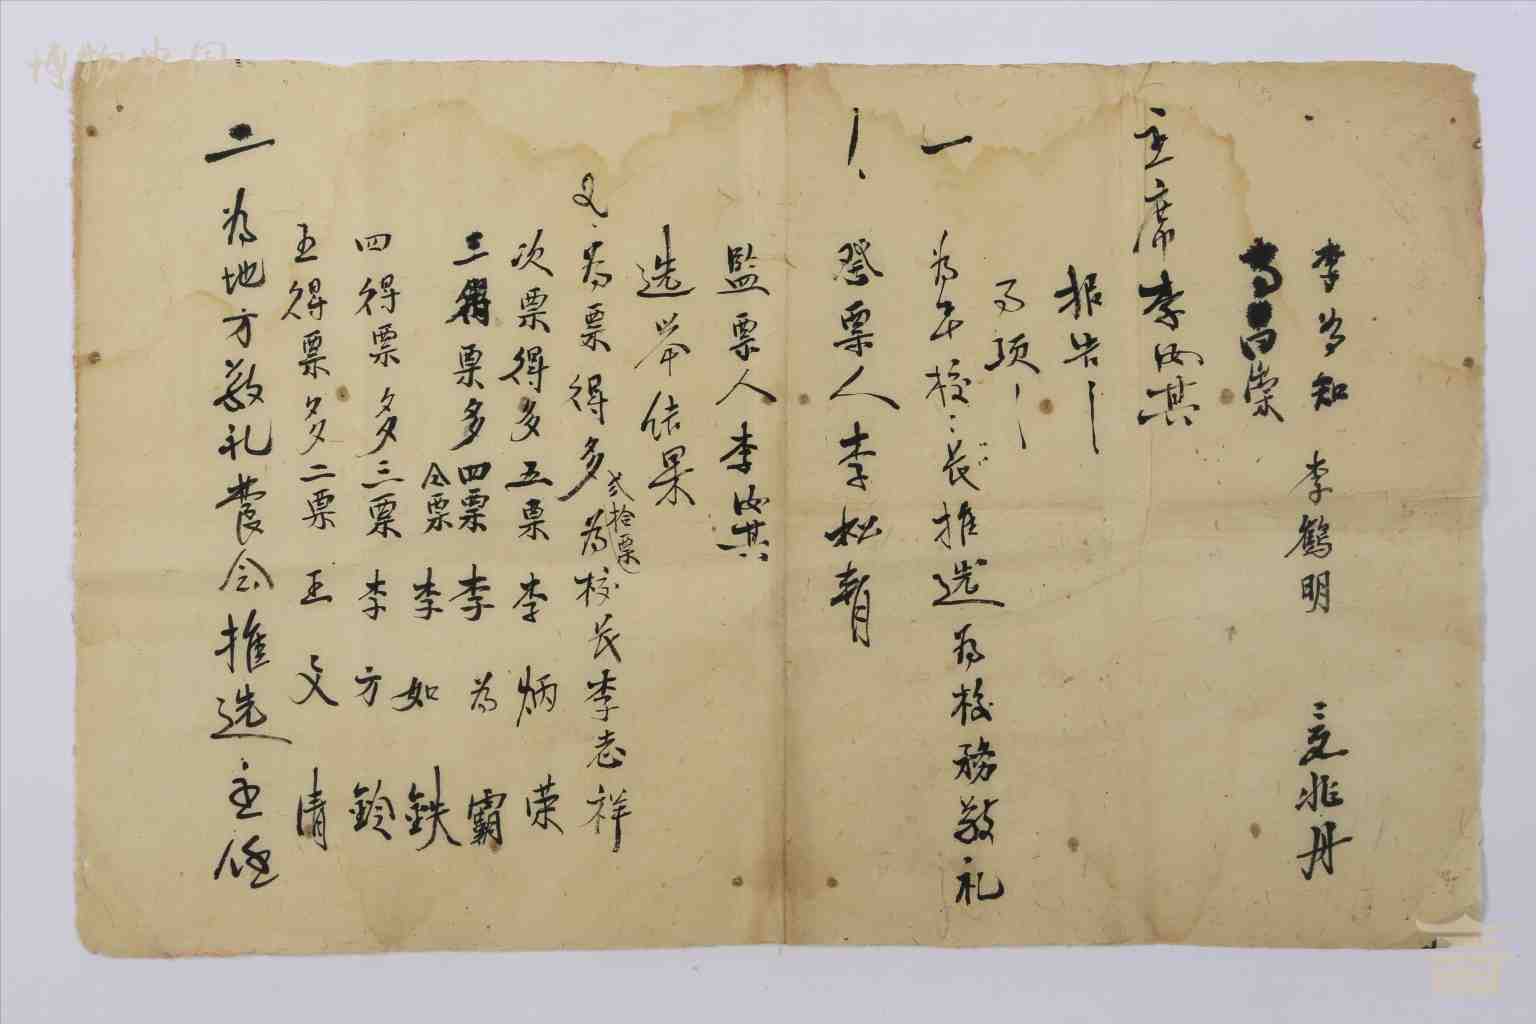 李为知 李鶴明 兆丹
崇
主席李汝其
报告
项
一 为本校校长推选为校務敬礼
1、發票人李松青
監票人李汝其
选举结果
2、为票得多弍拾票为校长李志祥
次票得多五票李炳荣
三得票多四票李为霸
仝票李如鉄
四得票多三票李方鈴
五得票多二票王文清
二 为地方敬礼费会推选主任
博物中国